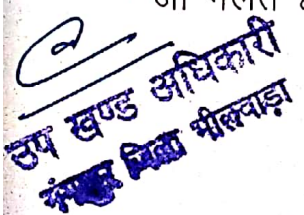 जा
उप खण्ड अधिकारी
जिला भीलवाड़ा